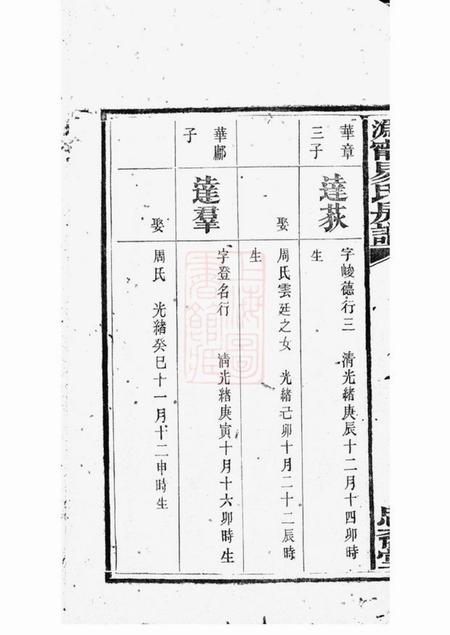 華章
三子
達荻
字峻德行三 清光緒庚辰十二月十四卯時
生
娶
周氏雲廷之女 光緒己卯十月二十二辰時
生
華鄘
子
達羣
字登名行 清光緒庚寅十月十六卯時生
娶
周氏 光緒癸巳十一月十二申時生